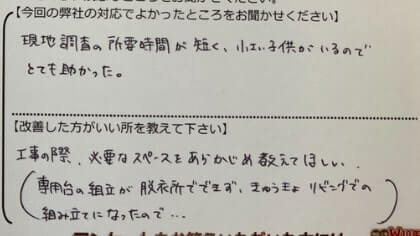 【今回の弊社の対応でよかったところをお聞かせください】
現地調査の所要時間が短く、小さい子供がいるので
とても助かった。
【改善した方がいい所を教えて下さい】
工事の際、必要なスペースをあらかじめ教えてほしい。
(専用台の組立が脱衣所でできず、きゅうきょリビングでの
組み立てになったので…)